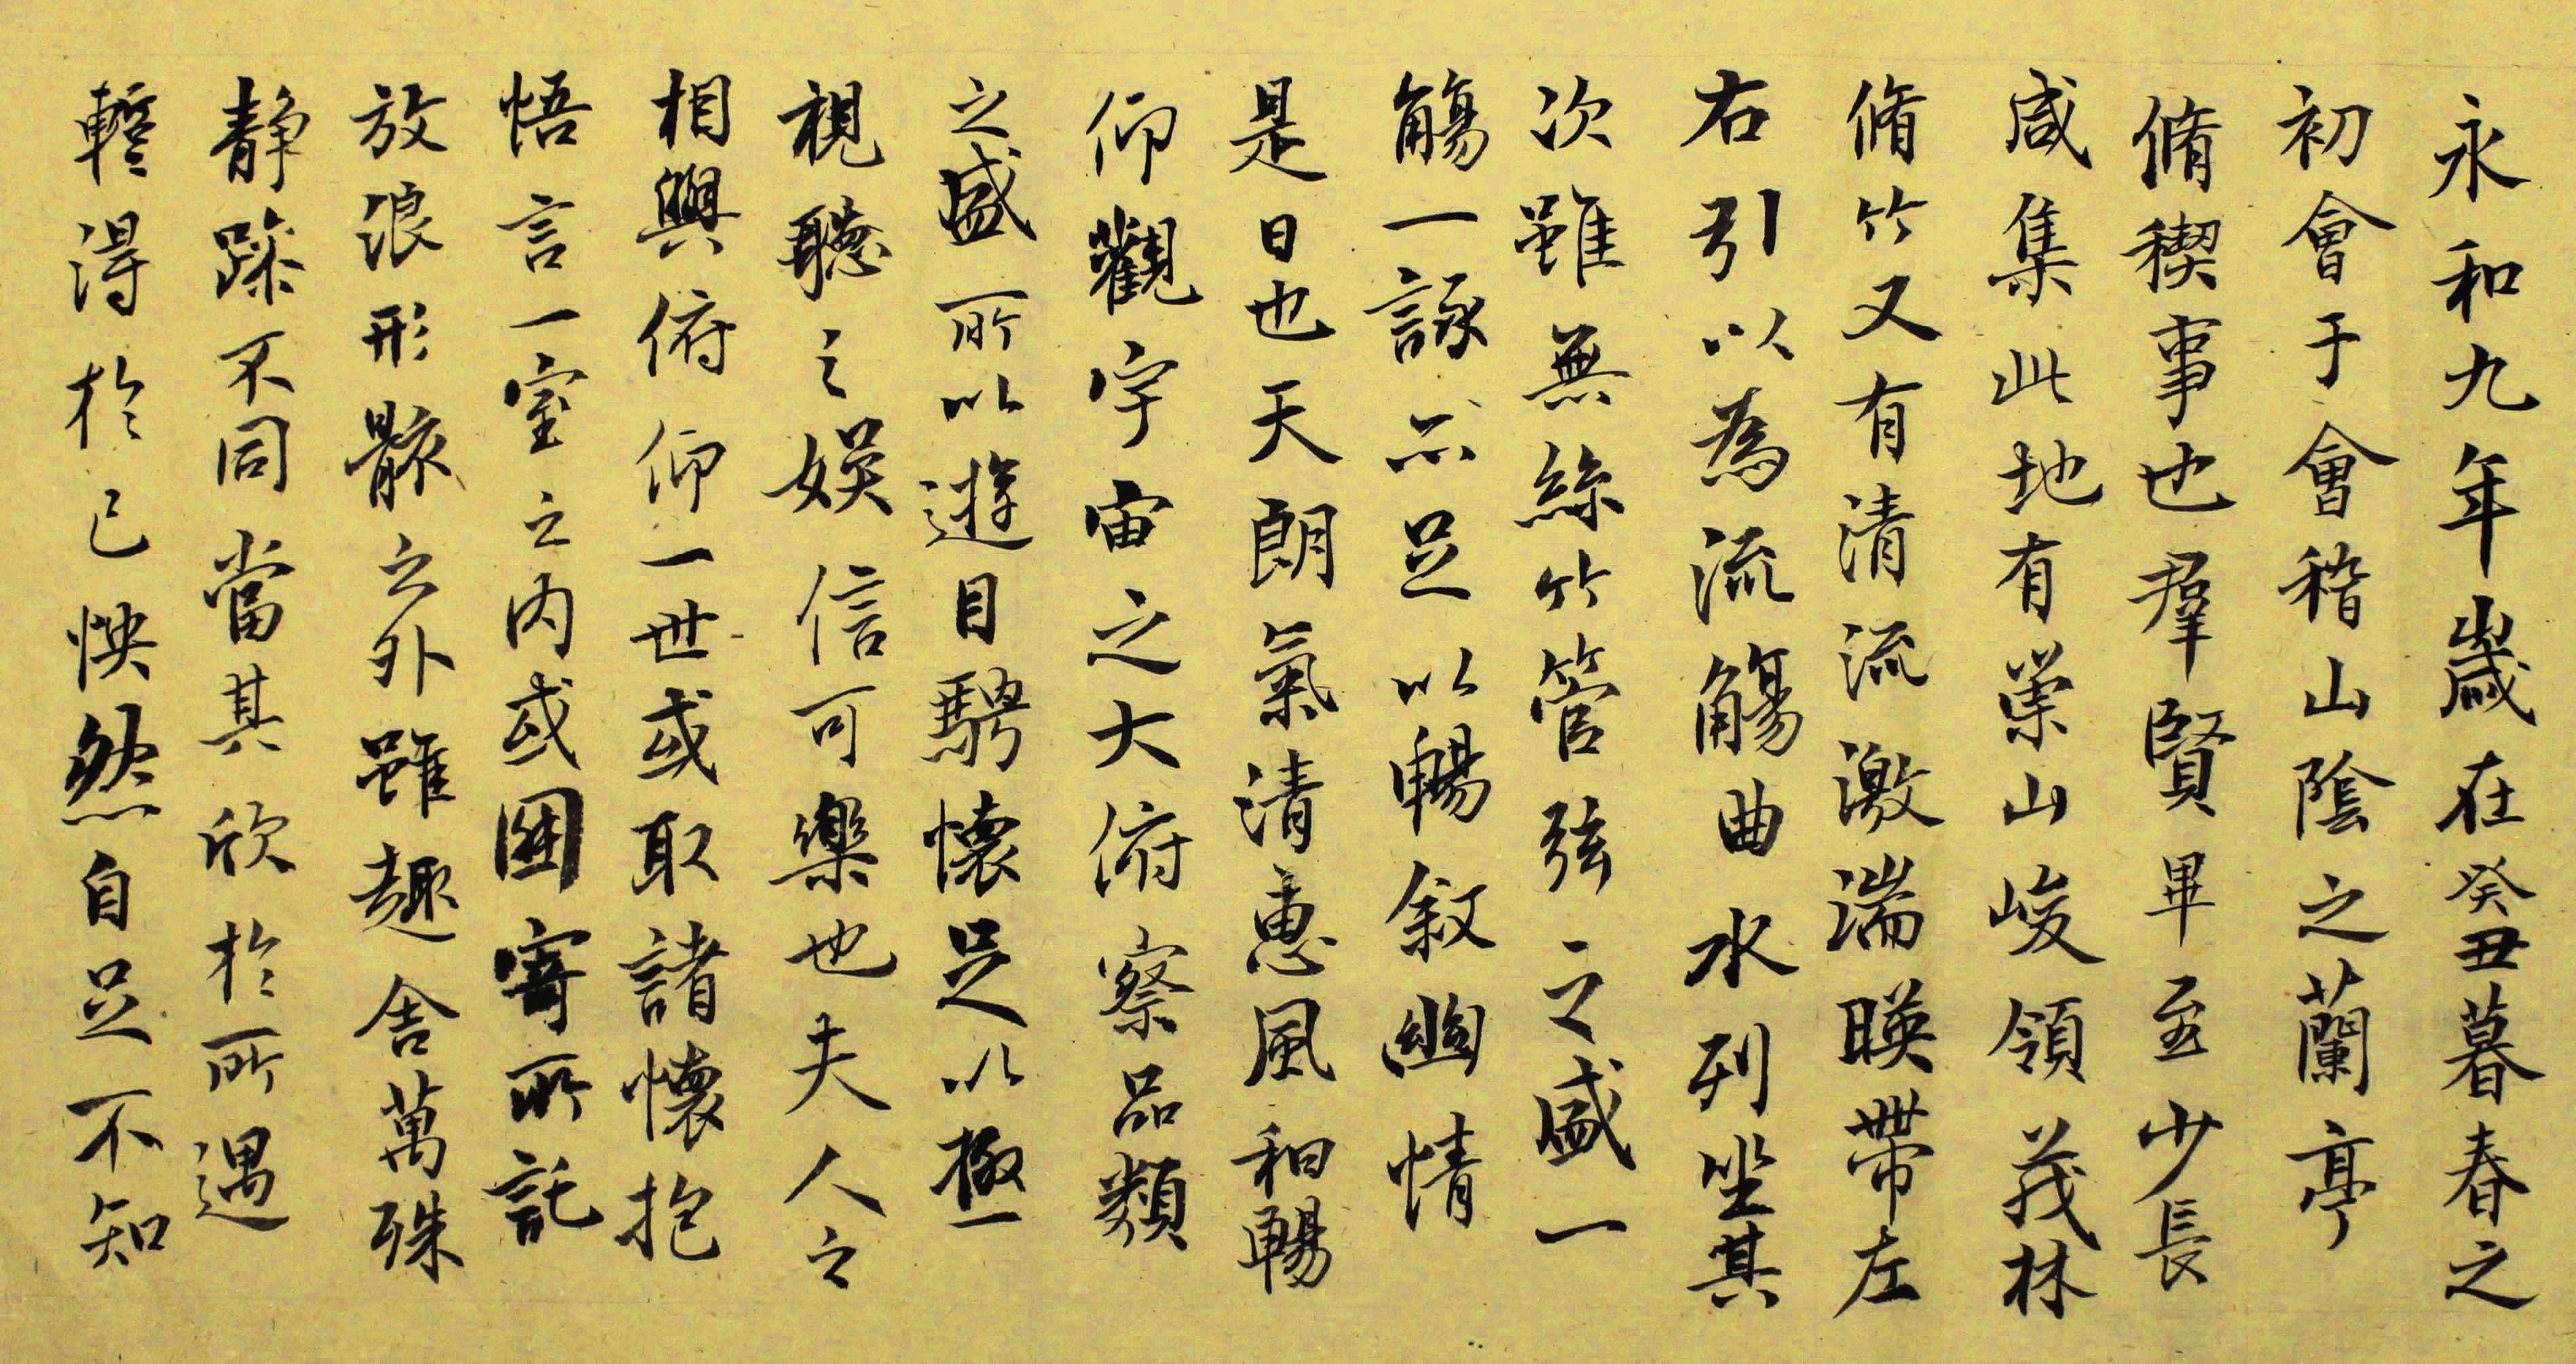 永和九年歲在癸丑暮春之
初會于會稽山陰之蘭亭
脩稧事也羣賢畢至少長
咸集此地有崇山峻領茂林
脩竹又有清流激湍暎帶左
右引以為流觴曲水列坐其
次雖無絲竹管弦之盛一
觴一詠亦足以暢敘幽情
是日也天朗氣清惠風和暢
仰觀宇宙之大俯察品類
之盛所以遊目騁懷足以極
視聽之娛信可樂也夫人之
相與俯仰一世或取諸懷抱
悟言一室之內或因寄所託
放浪形骸之外雖趣舍萬殊
靜躁不同當其欣於所遇
暫得於己怏然自足不知